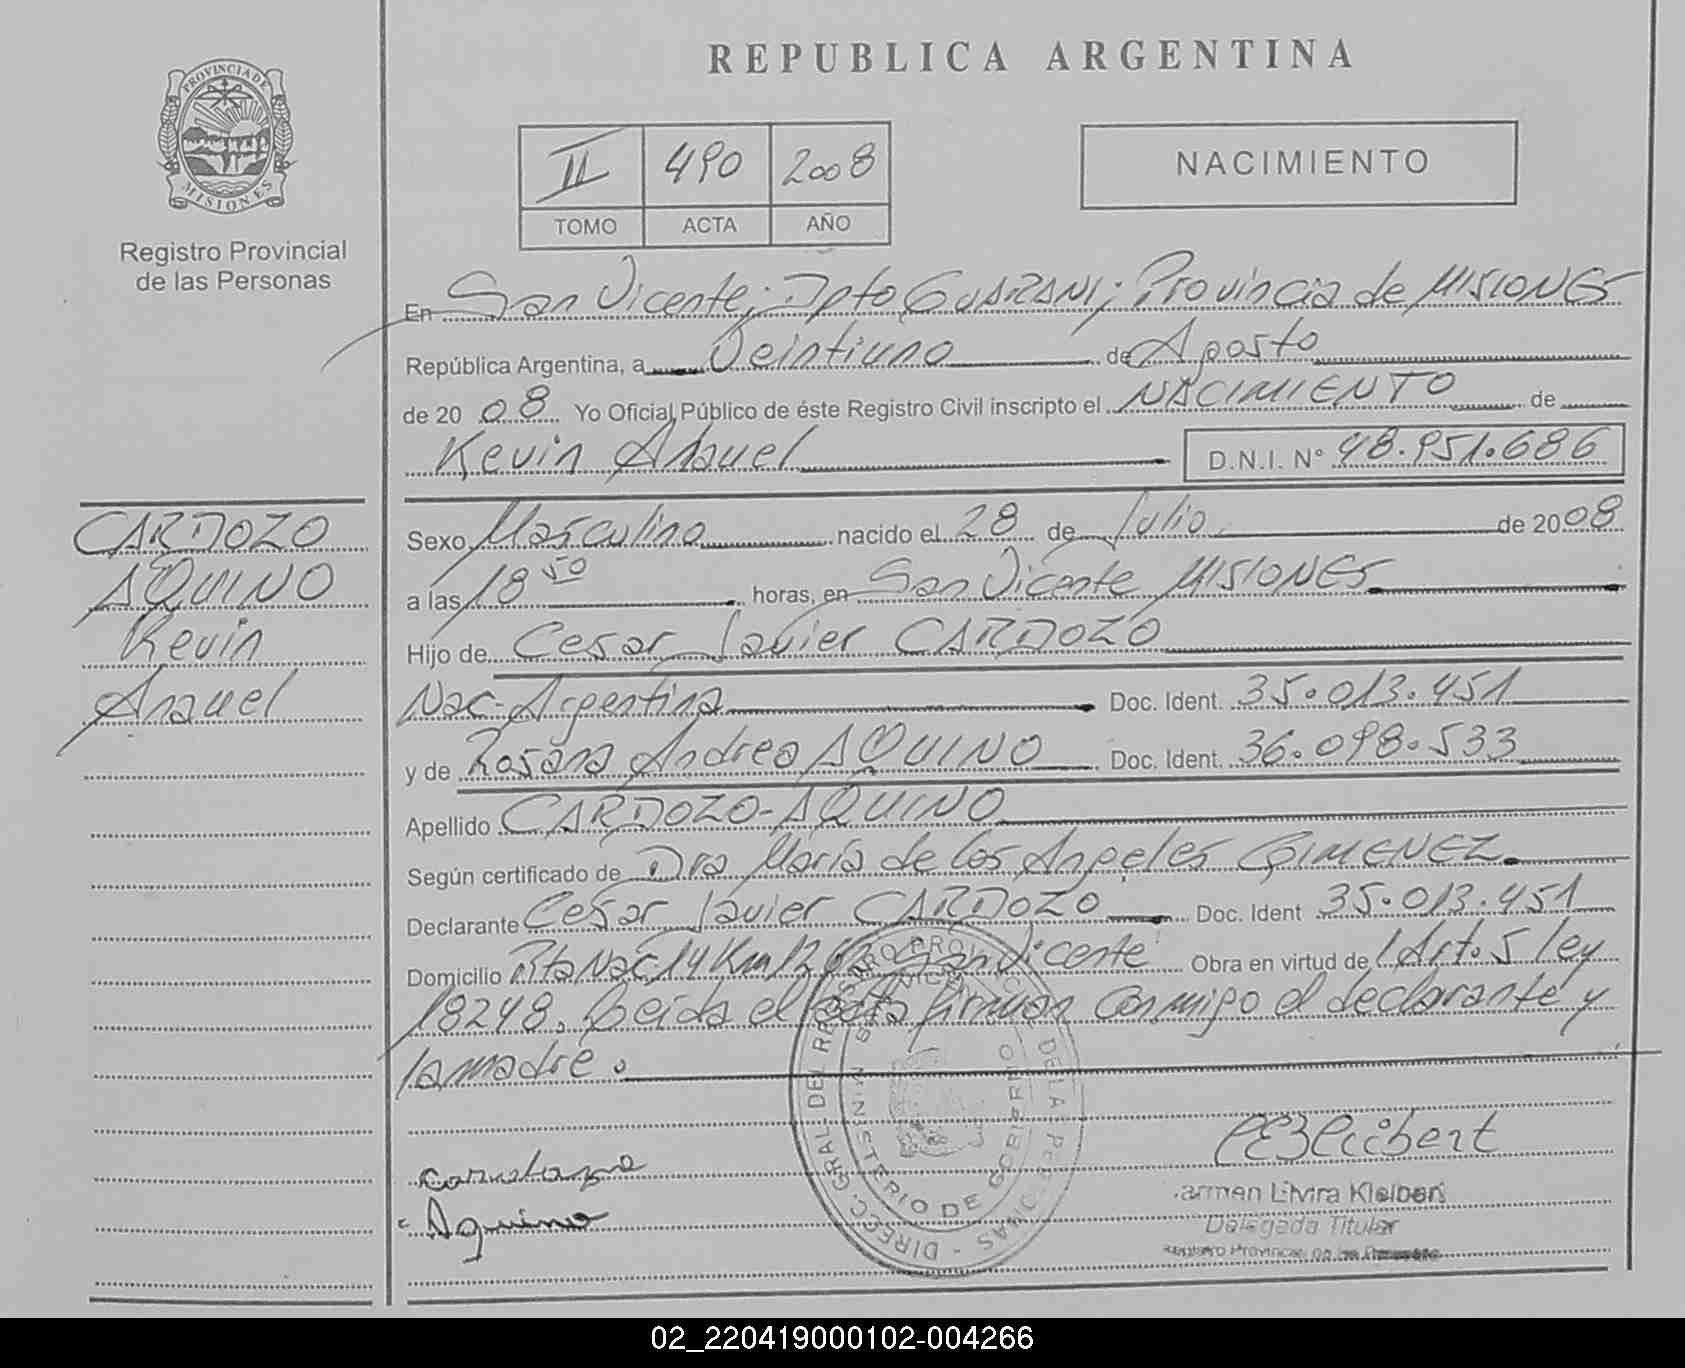 REPUBLICA ARGENTINA
PROVINCIA DE MISIONES
Registro Provincial
de las Personas
II 490 2008
TOMO ACTA AÑO
NACIMIENTO
En San Vicente; Dpto GUARANI; Provincia de MISIONES
República Argentina, a Veintiuno de Agosto
de 2008 Yo Oficial Público de éste Registro Civil inscripto el NACIMIENTO de
Kevin Anauel D.N.I. N° 48.951.686
CARDOZO
AQUINO
Kevin
Anauel
Sexo Masculino nacido el 28 de Julio de 2008
a las 18 50 horas, en San Vicente MISIONES
Hijo de Cesar Javier CARDOZO
Nac. Argentina Doc. Ident. 35.013.451
y de Rosana Andrea AQUINO Doc. Ident. 36.098.533
Apellido CARDOZO-AQUINO
Según certificado de Dra María de los Angeles GIMENEZ
Declarante Cesar Javier CARDOZO Doc. Ident 35.013.451
Domicilio Rta Nac 14 Km San Vicente Obra en virtud de Art. 5 ley
18248. Leida el acta firman conmigo el declarante y
la madre.
DIREC. GRAL. DEL REGISTRO PROVINCIAL DE LAS PERSONAS
MINISTERIO DE GOBIERNO
Aquino
armen Elvira Kleibert
Delegada Titular
Registro Provincial de las Personas
02_220419000102-004266